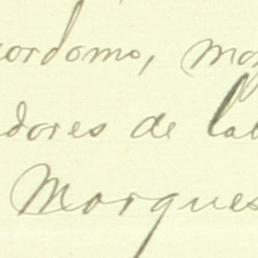 ordomo, mo
dores de lab
Marques